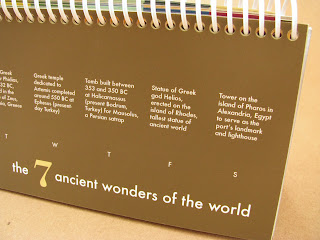 Greek
Phidias,
32 BC,
d in the
of Zeus,
Greece
Greek temple
dedicated to
Artemis completed
around 550 BC at
Ephesus (present
day Turkey)
Tomb built between
353 and 350 BC
at Halicarnassus
(present Bodrum,
Turkey) for Mausolus,
a Persian satrap
Statue of Greek
god Helios,
erected on the
island of Rhodes,
tallest statue of
ancient world
Tower on the
island of Pharos in
Alexandria, Egypt
to serve as the
port's landmark
and lighthouse
T W T F S
the 7 ancient wonders of the world